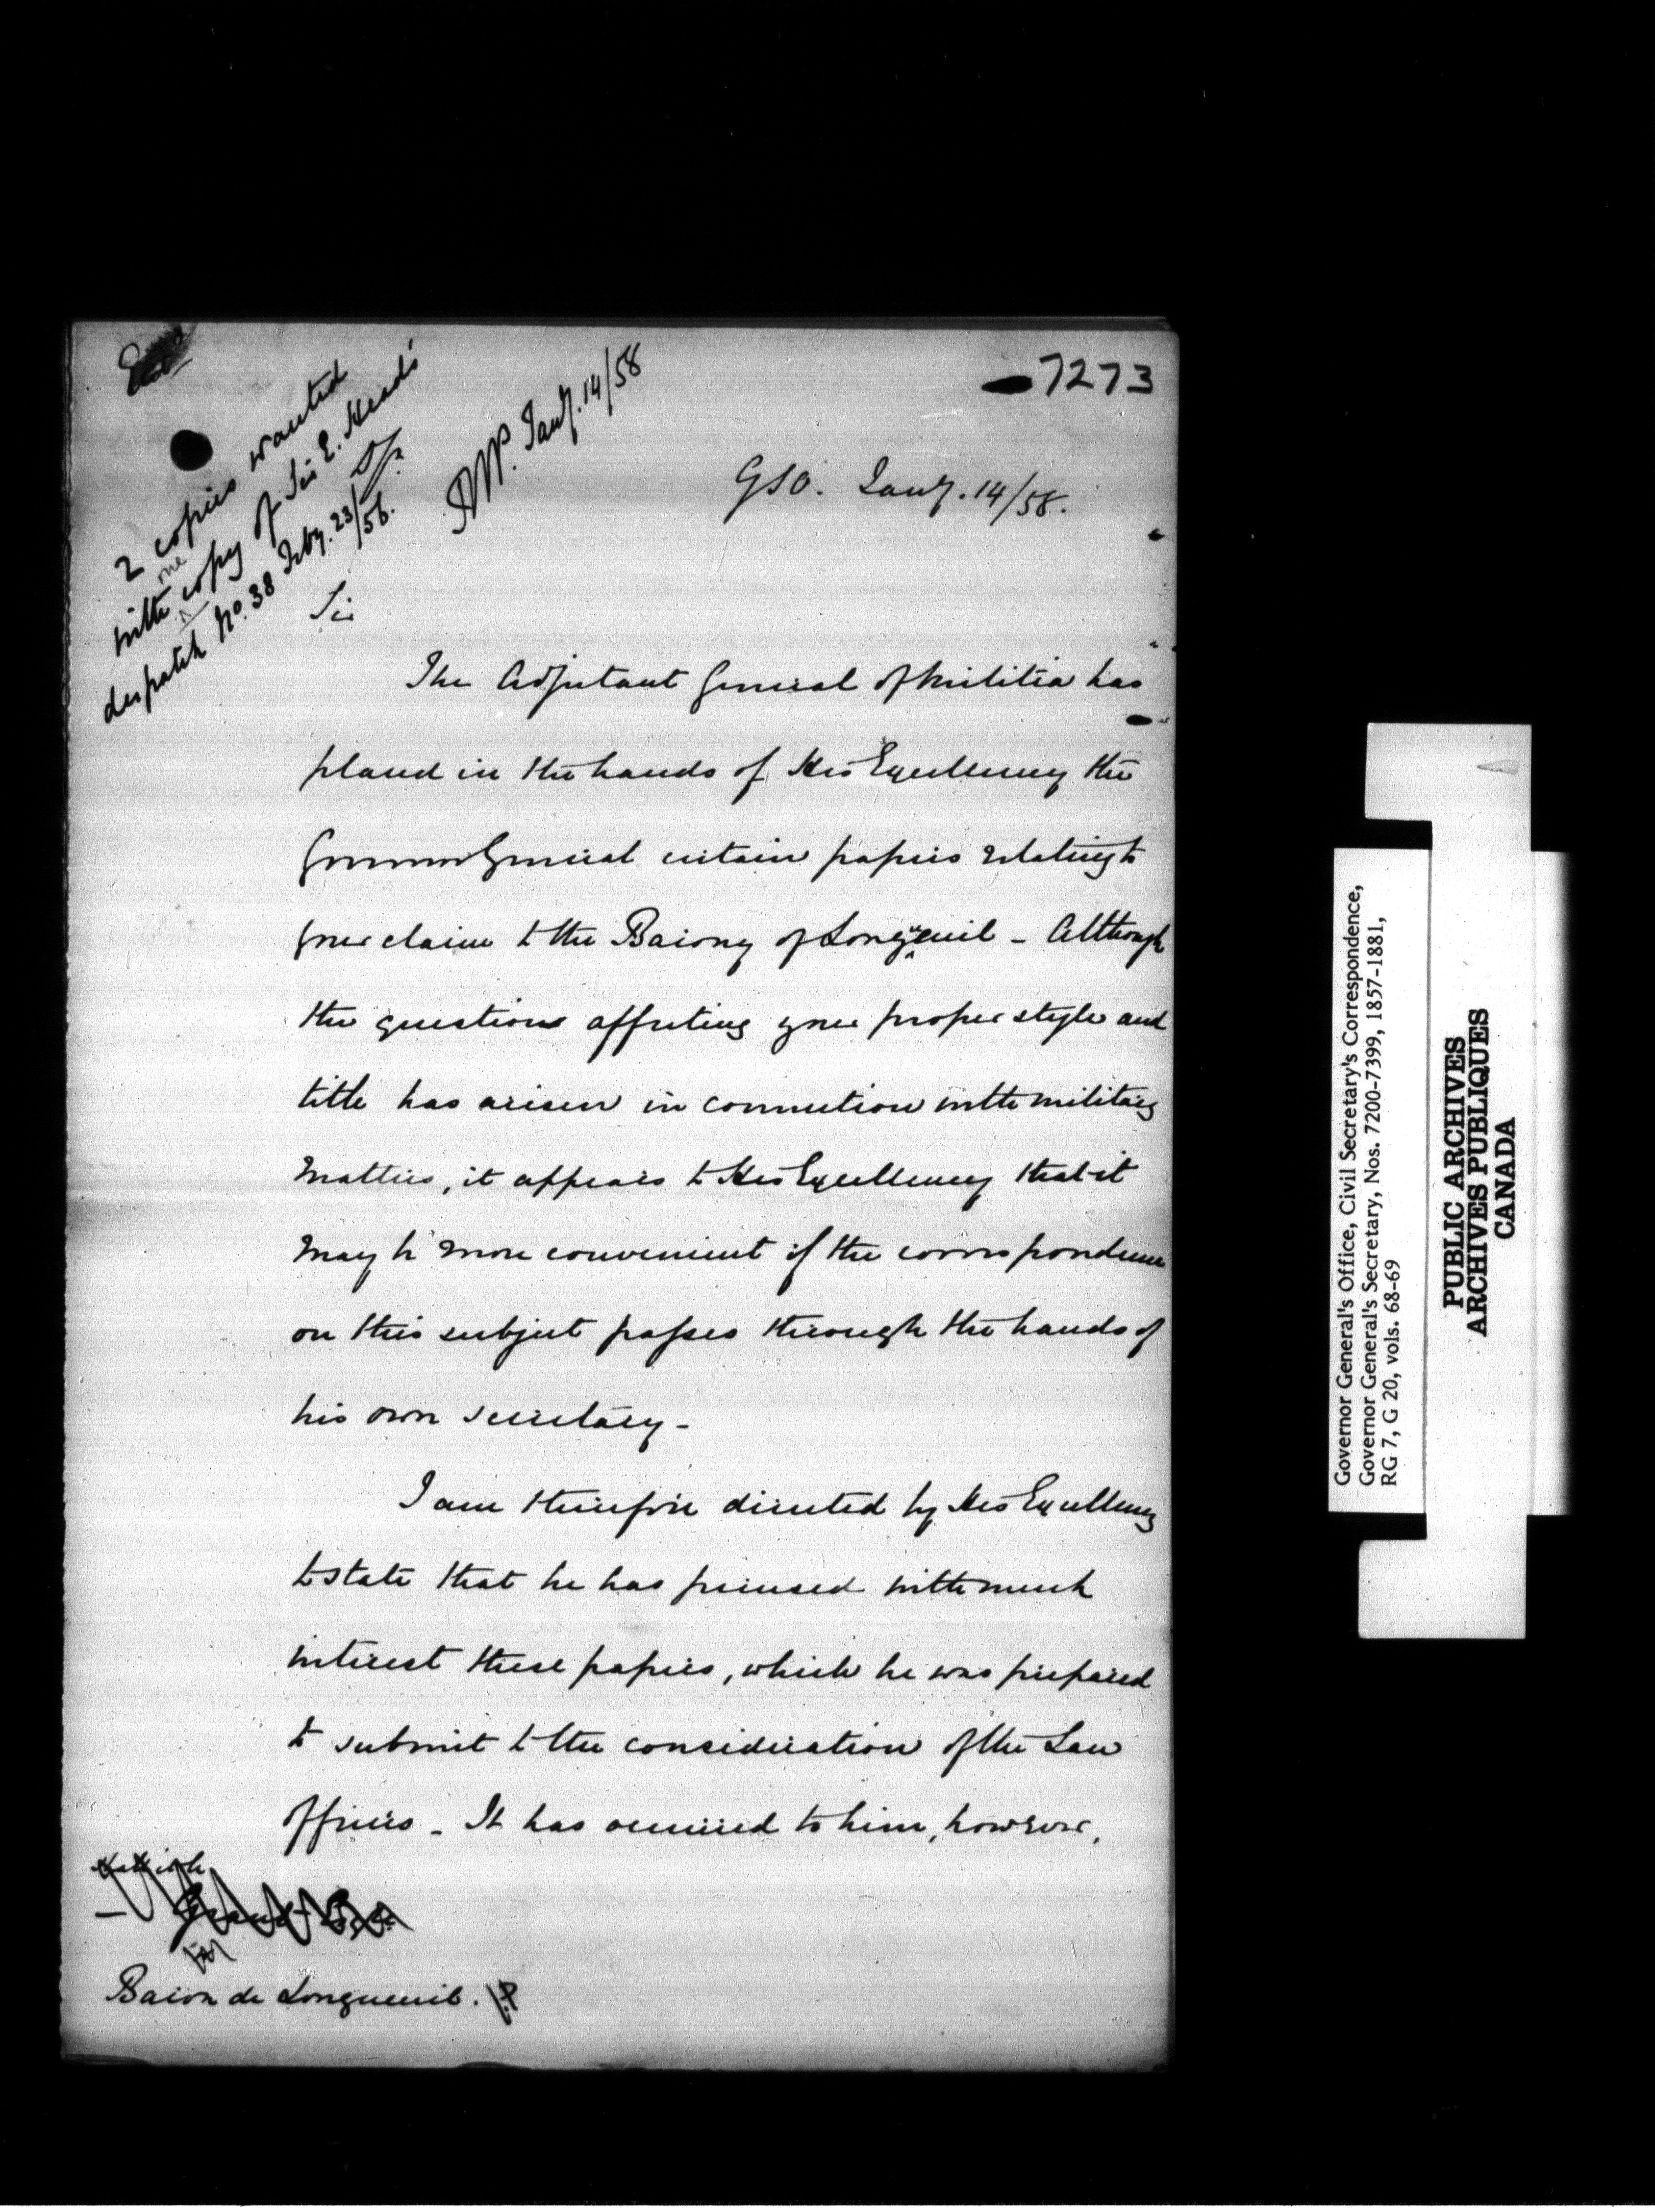 7273
2 copies wanted
with one copy of Sir E. Head's
despatch No. 38 Feby. 23/56.
Jany. 14/58
GSO. Jany. 14/58.
Sir
The Adjutant General of Militia has
placed in the hands of His Excellency the
Governor General certain papers relating to
your claim to the Barony of Longueuil - Although
the question affecting your proper style and
title has arisen in connection with military
matters, it appears to His Excellency that it
may be more convenient if the correspondence
on this subject passes through the hands of
his own secretary -
I am therefore directed by His Excellency
to state that he has perused with much
interest these papers, which he was prepared
to submit to the consideration of the Law
Officers - It has occurred to him, however,
Baron de Longueuil.
Governor General's Office, Civil Secretary's Correspondence,
Governor General's Secretary, Nos. 7200-7399, 1857-1881,
RG 7, G 20, vols. 68-69
PUBLIC ARCHIVES
ARCHIVES PUBLIQUES
CANADA